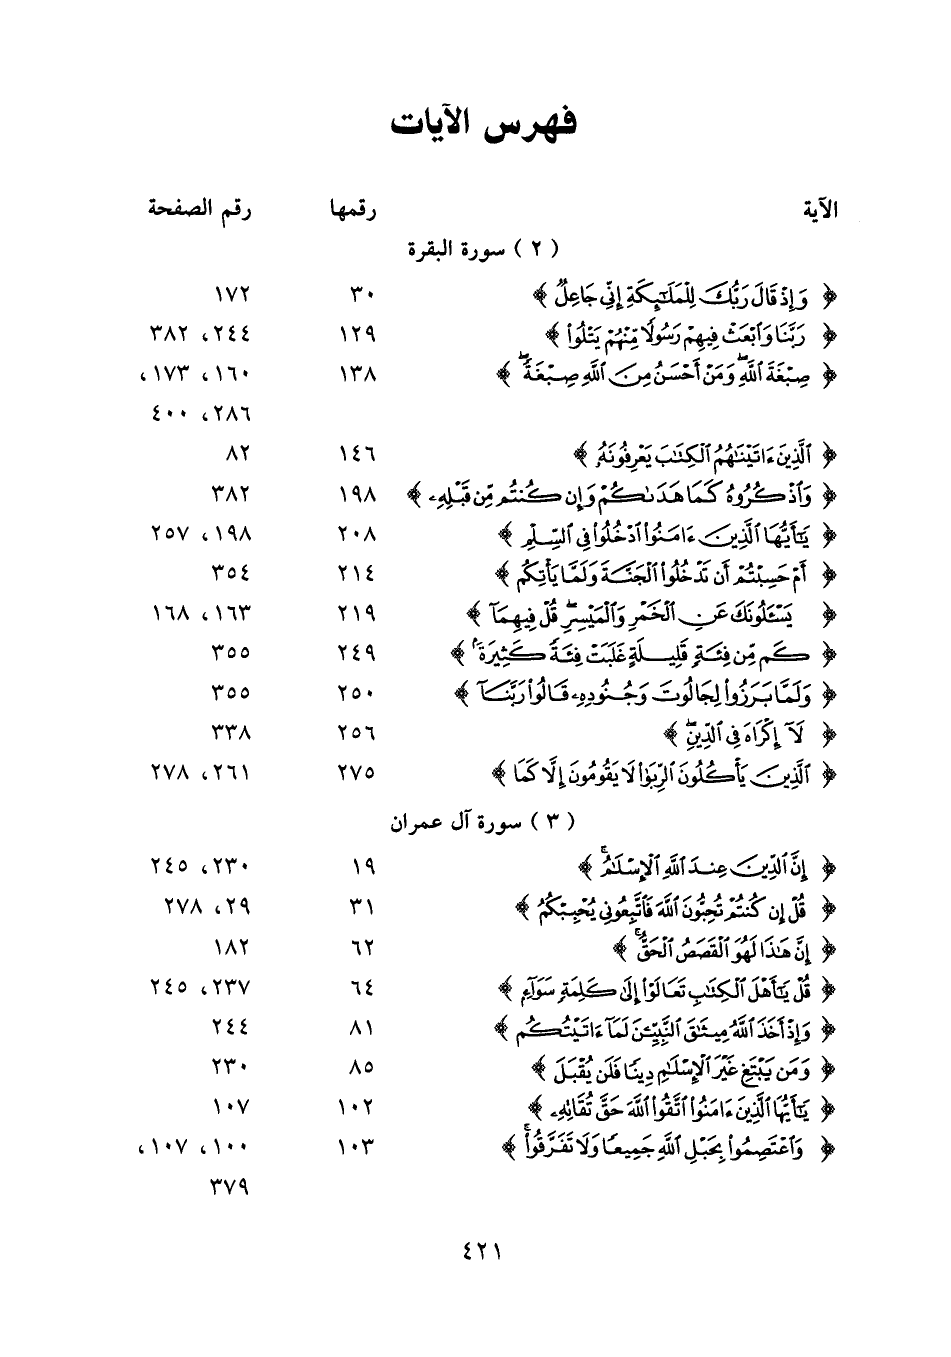 فهرس الآيات
الآية رقمها رقم الصفحة
( ٢ ) سورة البقرة
﴿ وَإِذْ قَالَ رَبُّكَ لِلْمَلَٰٓئِكَةِ إِنِّي جَاعِلٌ ﴾ ٣٠ ١٧٢
﴿ رَبَّنَا وَٱبْعَثْ فِيهِمْ رَسُولًا مِّنْهُمْ يَتْلُوا۟ ﴾ ١٢٩ ٢٤٤، ٣٨٢
﴿ صِبْغَةَ ٱللَّهِۖ وَمَنْ أَحْسَنُ مِنَ ٱللَّهِ صِبْغَةًۖ ﴾ ١٣٨ ١٦٠، ١٧٣،
٢٨٦، ٤٠٠
﴿ ٱلَّذِينَ ءَاتَيْنَٰهُمُ ٱلْكِتَٰبَ يَعْرِفُونَهُۥ ﴾ ١٤٦ ٨٢
﴿ وَٱذْكُرُوهُ كَمَا هَدَىٰكُمْ وَإِن كُنتُم مِّن قَبْلِهِۦ ﴾ ١٩٨ ٣٨٢
﴿ يَٰٓأَيُّهَا ٱلَّذِينَ ءَامَنُوا۟ ٱدْخُلُوا۟ فِي ٱلسِّلْمِ ﴾ ٢٠٨ ١٩٨، ٢٥٧
﴿ أَمْ حَسِبْتُمْ أَن تَدْخُلُوا۟ ٱلْجَنَّةَ وَلَمَّا يَأْتِكُم ﴾ ٢١٤ ٣٥٤
﴿ يَسْـَٔلُونَكَ عَنِ ٱلْخَمْرِ وَٱلْمَيْسِرِۖ قُلْ فِيهِمَآ ﴾ ٢١٩ ١٦٣، ١٦٨
﴿ كَم مِّن فِئَةٍ قَلِيلَةٍ غَلَبَتْ فِئَةً كَثِيرَةًۢ ﴾ ٢٤٩ ٣٥٥
﴿ وَلَمَّا بَرَزُوا۟ لِجَالُوتَ وَجُنُودِهِۦ قَالُوا۟ رَبَّنَآ ﴾ ٢٥٠ ٣٥٥
﴿ لَآ إِكْرَاهَ فِي ٱلدِّينِۖ ﴾ ٢٥٦ ٣٣٨
﴿ ٱلَّذِينَ يَأْكُلُونَ ٱلرِّبَوٰا۟ لَا يَقُومُونَ إِلَّا كَمَا ﴾ ٢٧٥ ٢٦١، ٢٧٨
( ٣ ) سورة آل عمران
﴿ إِنَّ ٱلدِّينَ عِندَ ٱللَّهِ ٱلْإِسْلَٰمُۗ ﴾ ١٩ ٢٣٠، ٢٤٥
﴿ قُلْ إِن كُنتُمْ تُحِبُّونَ ٱللَّهَ فَٱتَّبِعُونِي يُحْبِبْكُمُ ﴾ ٣١ ٢٩، ٢٧٨
﴿ إِنَّ هَٰذَا لَهُوَ ٱلْقَصَصُ ٱلْحَقُّۚ ﴾ ٦٢ ١٨٢
﴿ قُلْ يَٰٓأَهْلَ ٱلْكِتَٰبِ تَعَالَوْا۟ إِلَىٰ كَلِمَةٍ سَوَآءٍ ﴾ ٦٤ ٢٣٧، ٢٤٥
﴿ وَإِذْ أَخَذَ ٱللَّهُ مِيثَٰقَ ٱلنَّبِيِّـۧنَ لَمَآ ءَاتَيْتُكُم ﴾ ٨١ ٢٤٤
﴿ وَمَن يَبْتَغِ غَيْرَ ٱلْإِسْلَٰمِ دِينًا فَلَن يُقْبَلَ ﴾ ٨٥ ٢٣٠
﴿ يَٰٓأَيُّهَا ٱلَّذِينَ ءَامَنُوا۟ ٱتَّقُوا۟ ٱللَّهَ حَقَّ تُقَاتِهِۦ ﴾ ١٠٢ ١٠٧
﴿ وَٱعْتَصِمُوا۟ بِحَبْلِ ٱللَّهِ جَمِيعًا وَلَا تَفَرَّقُوا۟ۚ ﴾ ١٠٣ ١٠٠، ١٠٧،
٣٧٩
٤٢١